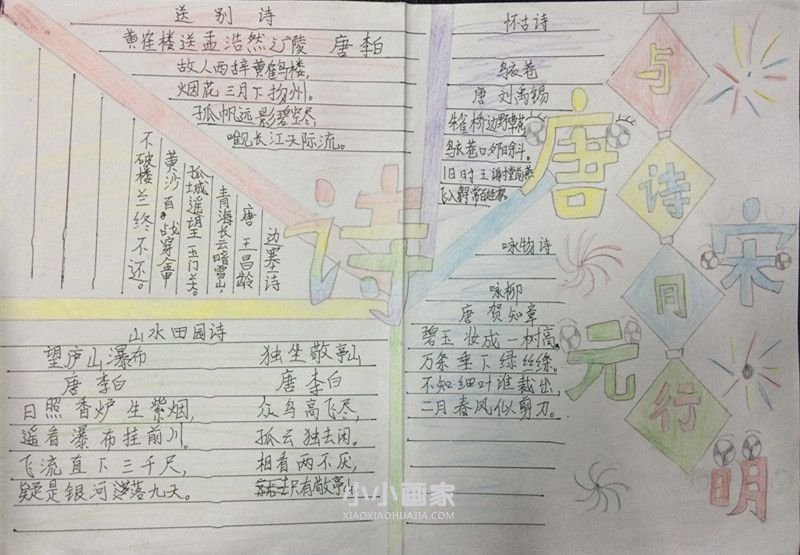 送别诗
黄雀楼送孟浩然之广陵 唐 李白
故人西辞黄雀楼，
烟花三月下扬州。
孤帆远影碧空尽
唯见长江天际流。
边塞诗
唐 王昌龄
青海长云暗雪山，
孤城遥望玉门关。
黄沙百战穿金甲
不破楼兰终不还。
诗
山水田园诗
望庐山瀑布
唐 李白
日照香炉生紫烟，
遥看瀑布挂前川。
飞流直下三千尺，
疑是银河落九天。
独坐敬亭山
唐 李白
众鸟高飞尽，
孤云独去闲。
相看两不厌，
只有敬亭山
怀古诗
乌衣巷
唐 刘禹锡
朱雀桥边野草花
乌衣巷口夕阳斜。
旧时王谢堂前燕
飞入寻常百姓家。
咏物诗
咏柳
唐 贺知章
碧玉妆成一树高。
万条垂下绿丝绦。
不知细叶谁裁出，
二月春风似剪刀。
与诗同行
唐宋元明
小小画家
XIAOXIAOHUAJIA.COM